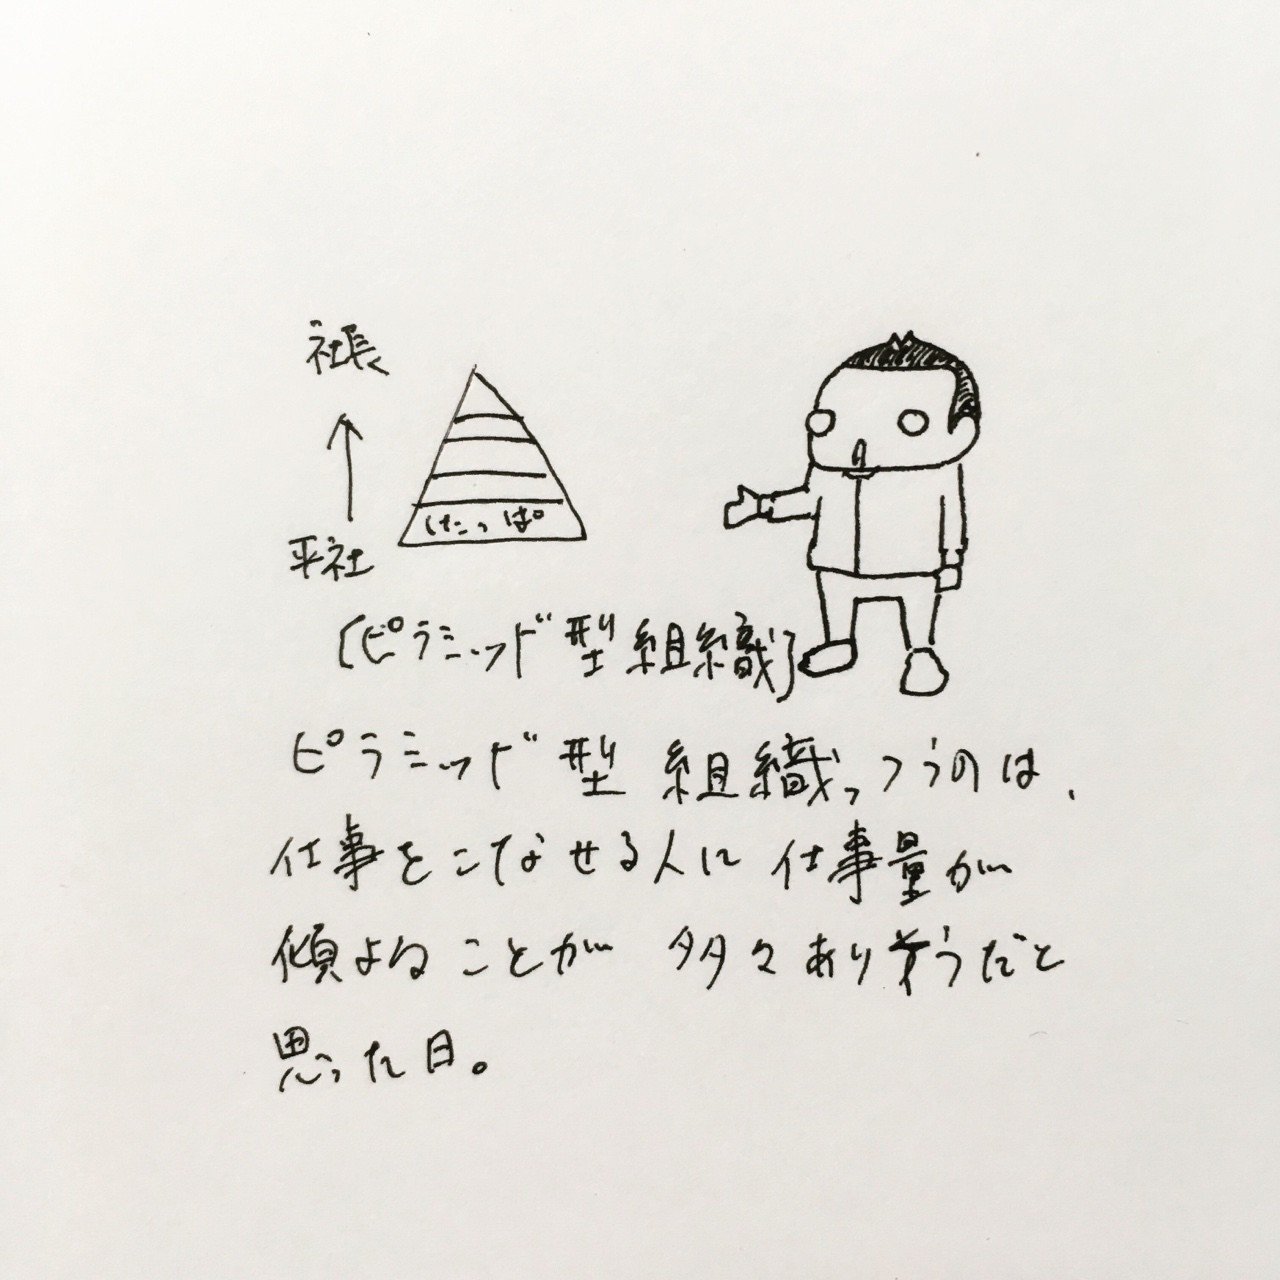 社長
↑
平社
したっぱ
〔ピラミッド型組織〕
ピラミッド型組織っつうのは、
仕事をこなせる人に仕事量が
傾よることが多々ありそうだと
思った日。